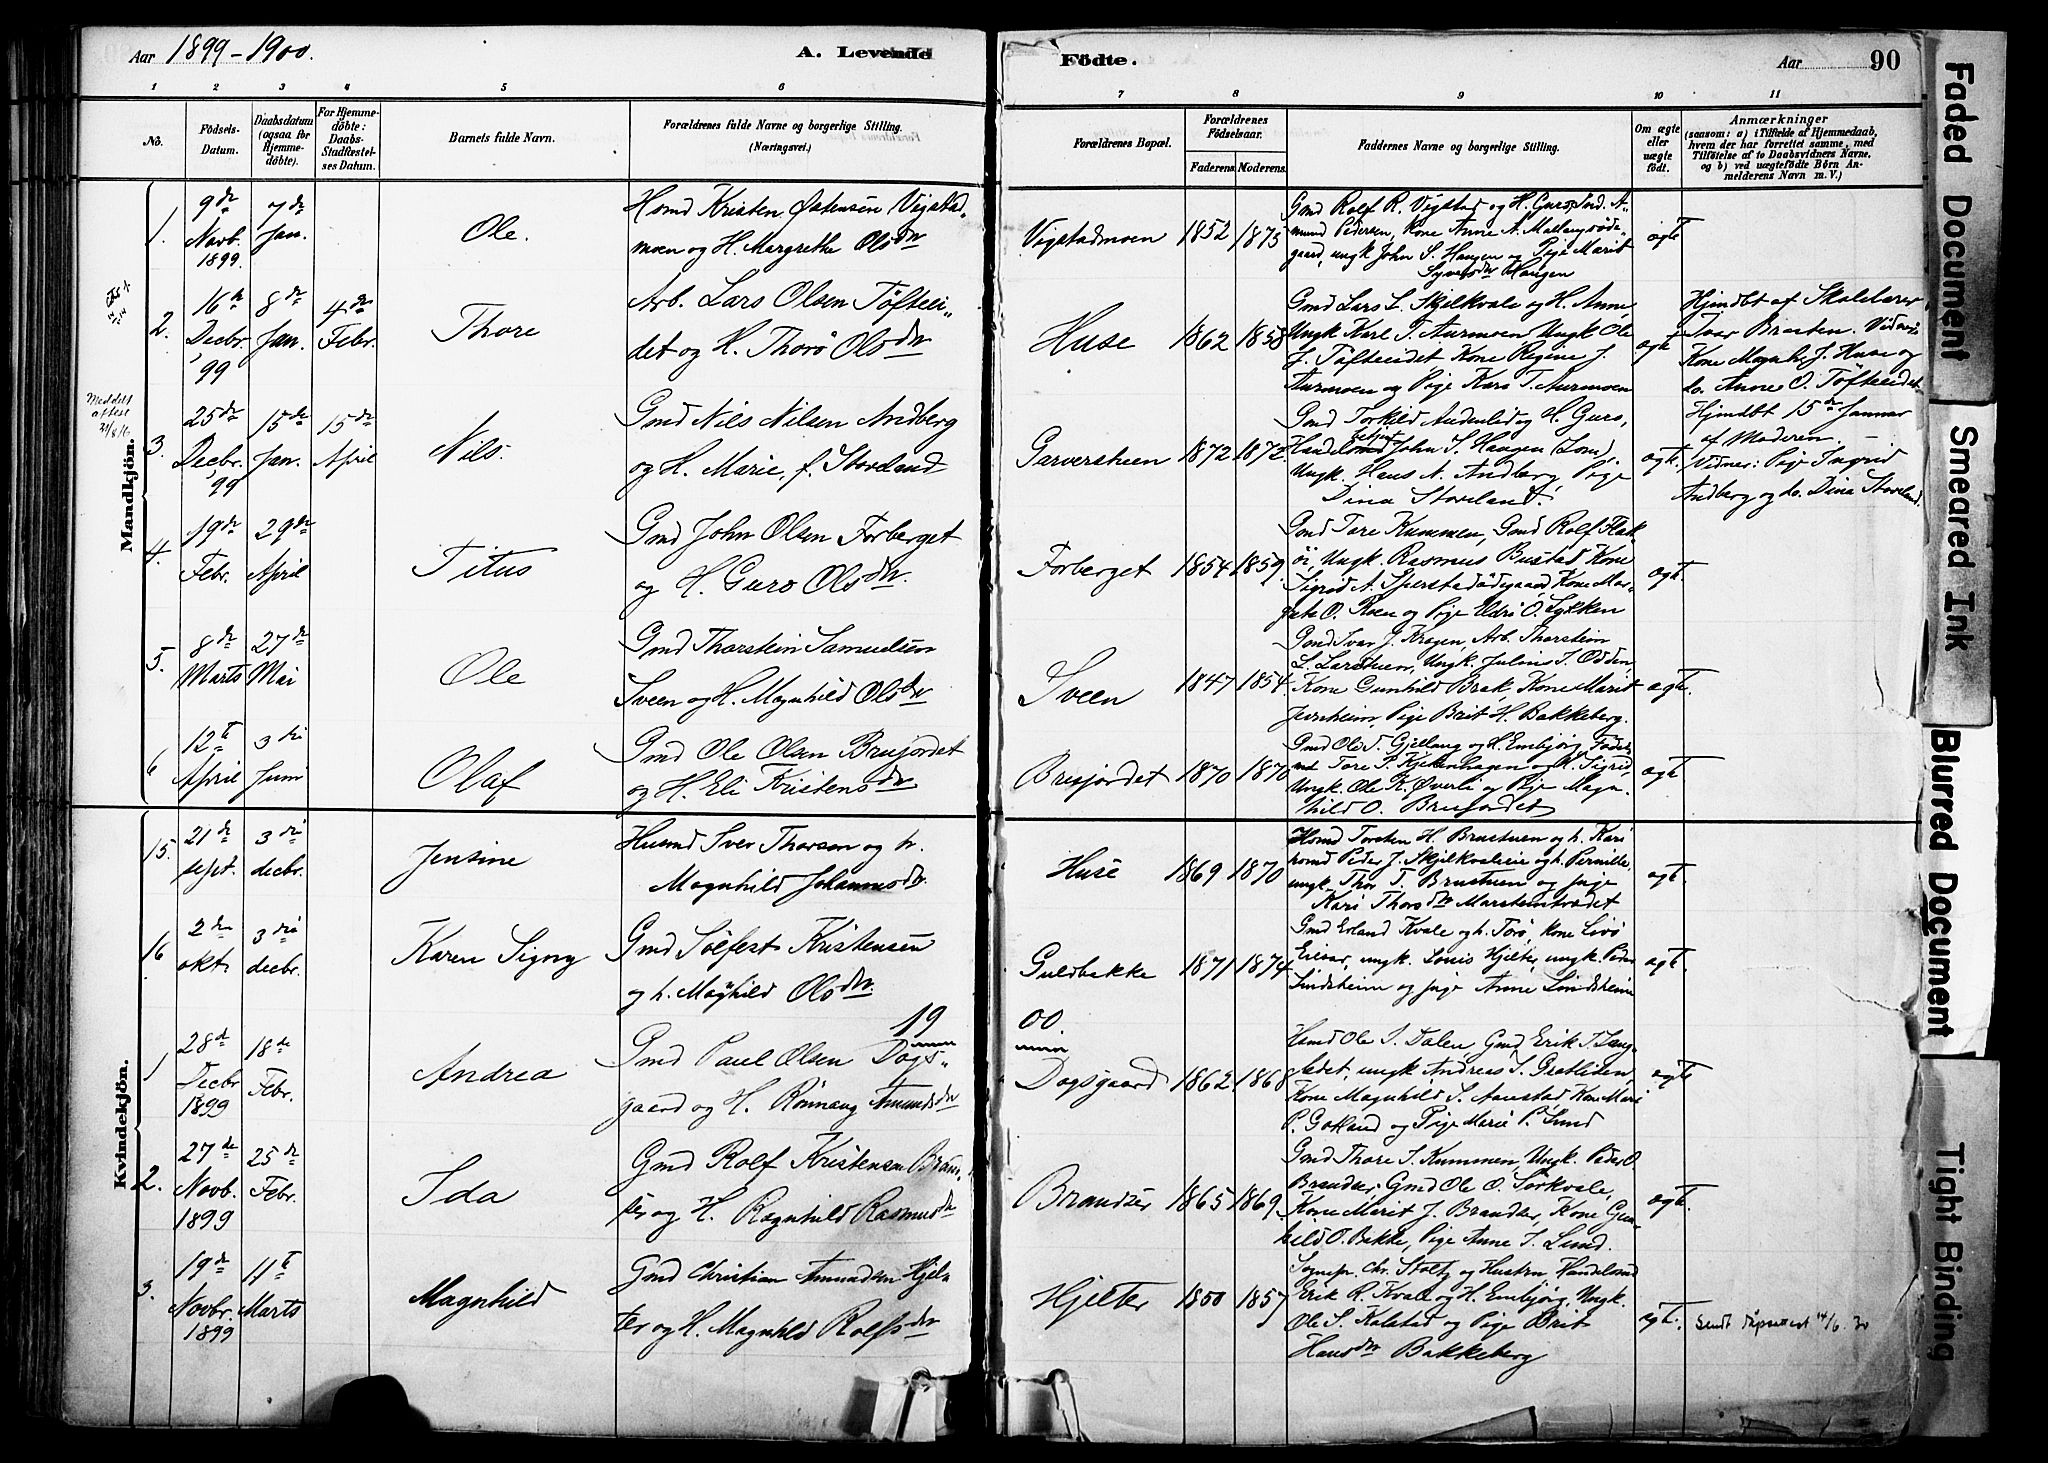 Aar 1899-1900.
A. Levende
Födte.
Aar
90
1 2 3 4 5 6 7 8 9 10 11
No.
Födsels-Datum.
Daabsdatum (ogsaa for Hjemmedöbte).
For Hjemmedöbte: Daabs-Stadfæstelses Datum.
Barnets fulde Navn.
Forældrenes fulde Navne og borgerlige Stilling. (Næringsvei.)
Forældrenes Bopæl.
Forældrenes Födselsaar.
Faderens. Moderens.
Faddernes Navne og borgerlige Stilling.
Om ægte eller uægte födt.
Anmærkninger
(saasom: a) i Tilfælde af Hjemmedaab, hvem der har forrettet samme, med Tilföielse af to Daabsvidners Navne, og b) ved uægtefödte Börn Anmelderens Navn m. V.)
Mandkjön.
1. 9de Novb. 1899. 7de Jan.
Ole.
Hsmd Kristen Østensen Vigstad-
moen og H. Margrethe Olsdtr
Vigstadmoen 1852 1875
Gmd Rolf R. Vigstad og H. Guro, Ind. A-
mund Pedersen, Kone Anne A. Mællangsöde-
gaard, ungk John S. Haugen og Pige Marit
Syversdtr Haugen
ægte
2. 16de Decbr. 99 8de Jan. 4de Febr.
Thore
Arb. Lars Olsen Töftei-
det og H. Thorö Olsdtr
Huse 1862 1858
Gmd Lars L. Skjelkvale og H. Anne,
Ungk Karl T. Aurmoen, Ungk Ole
J. Töfteeidet Kone Regine J.
Aurmoen og Pige Kari T. Aurmoen
ægte
Hjmdbt af Skolelærer
Ivar Bræsten. Vidner:
Kone Magnh. J. Huse og
do. Anne O. Töfteeidet.
Meddelt attest 31/8 16
3. 25de Decbr. 99 15de Jan. 15de April
Nils.
Gmd Nils Nilsen Andberg
og H. Marie, f. Storeland
Garversteen 1872 1872
Gmd Torkild Audenlid og H. Guro,
Handelsbetjent John S. Haugen (Lom),
Ungk. Hans N. Andberg, Pige
Dina Storeland.
ægte.
Hjmdbt 15de Januar
af Moderen. —
Vidner: Pige Ingrid
Andberg og do. Dina Storeland.
4. 19de Febr. 29de April
Titus
Gmd John Olsen Forberget
og H. Guro Olsdtr.
Forberget 1854 1859
Gmd Tore Kummen, Gmd Rolf Flak-
öi, Ungk. Rasmus Bustad, Kone
Sigrid A. Sperstadödegaard, Kone Mar-
grete O. Roen og Pige Eldri O. Lykken
ægte.
5. 8de Marts 27de Mai
Ole
Gmd Thorstein Samuelsen
Sveen og H. Magnhild Olsdtr
Sveen 1847 1854
Gmd Ivar J. Kragen, Arb. Thorstein
L. Larstuen, Ungk. Julius I. Odden,
Kone Gunhild Bræk, Kone Marit
Jernheim, Pige Brit H. Bakkeberg.
ægte.
6 12te April 3die Juni
Olaf
Gmd Ole Olsen Brujordet
og H. Eli Kristensdtr
Brujordet 1870 1870
Gmd Ole T. Gjellang og H. Embjörg,
Tore P. Kjelenhagen og H. Sigrid,
Ungk. Ole K. Øverli og Pige Magn-
hild O. Brujordet
ægte
Kvindekjön.
15. 21de sept. 3die decbr.
Jensine
Husmd Iver Thorsen og h.
Magnhild Johannesdtr.
Huse 1869 1870
Husmd Torsten H. Brustuen og h. Kari
husmd Peder J. Skjelkvaleie og h. Pernille,
ungk. Thor T. Brustuen og pige
Kari Thorsdtr Marsteintrædet
ægt.
16 2den okt. 3die decbr.
Karen Signy
Gmd Sölfest Kristensen
og h. Maghild Olsdtr.
Guldbakke 1871 1874
Gmd Erland Kvale og h. Torö, kone Livö
ungk. Louis Hjelter, ungk. Peder
Lindsheim og pige Anne Lindsheim
ægt.
19 00.
1 28de Decbr 1899 18de Febr.
Andrea
Gmd Paul Olsen Dags-
gaard og H. Rönnaug Amundsdtr
Dagsgaard 1862 1868
Hsmd Ole I. Dalen, Gmd Erik T.
ungk Andreas S. Grötliden,
Kone Magnhild S. Aaustad Kone Mari
P. Gokland og Pige Marie P. Lund
ægte
2. 27de Novb. 1899 25de Febr.
Ida
Gmd Rolf Kristensen Brand-
ser og H. Ragnhild Rasmusdtr
Brandser 1865 1869
Gmd Thore I. Kummen, Ungk. Peder O.
Brandser, Gmd Ole O. Sörkvale,
Kone Marit J. Brandser, Kone Gun-
hild O. Bakke, Pige Anne I. Lund.
ægte.
3. 19de Novbr. 1899 11te Marts
Magnhild
Gmd Christian Amundsen Hjel-
ter og H. Magnhild Rolfsdtr
Hjelter 1850 1857
Sognepr. Chr. Stoltz og Hustru, Handelsmd
Erik R. Kvale og H. Embjörg, Ungk.
Ole S. Kolstad og Pige Brit
Hansdtr Bakkeberg
ægt.
Sendt dåpsattest 14/6. 30
Faded Document
Smeared Ink
Blurred Document
Tight Binding